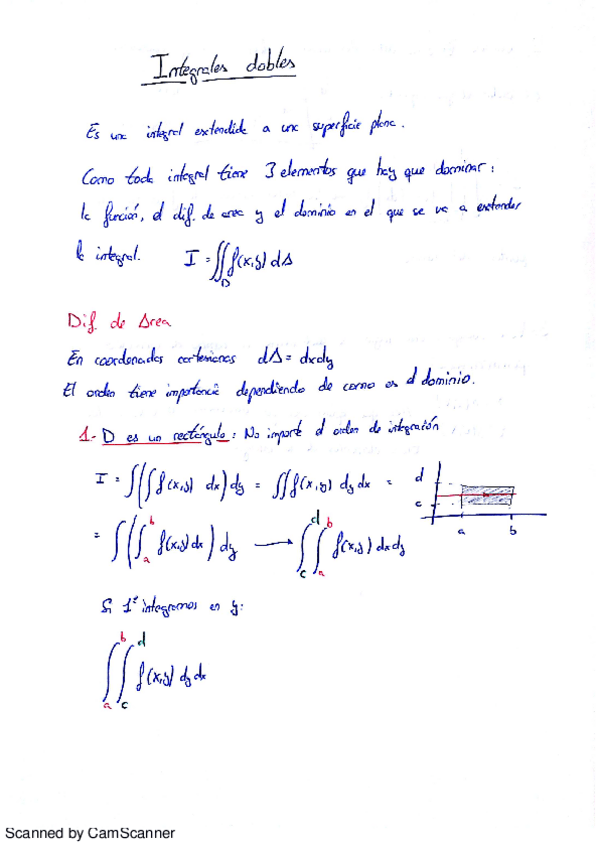 Integrales dobles
Es una integral extendida a una superficie plana.
Como toda integral tiene 3 elementos que hay que dominar:
la función, el dif. de area y el dominio en el que se va a extender
la integral. I = ∬_D f(x,y) dA
Dif. de Area
En coordenadas cartesianas dA = dxdy
El orden tiene importancia dependiendo de como es el dominio.
1.- D es un rectángulo: No importa el orden de integración
I = ∫(∫f(x,y) dx)dy = ∬f(x,y) dy dx =
d
c
a b
= ∫(∫_a^b f(x,y)dx) dy → ∫_c^d ∫_a^b f(x,y) dxdy
Si 1º integramos en y:
∫_a^b ∫_c^d f(x,y) dy dx
Scanned by CamScanner